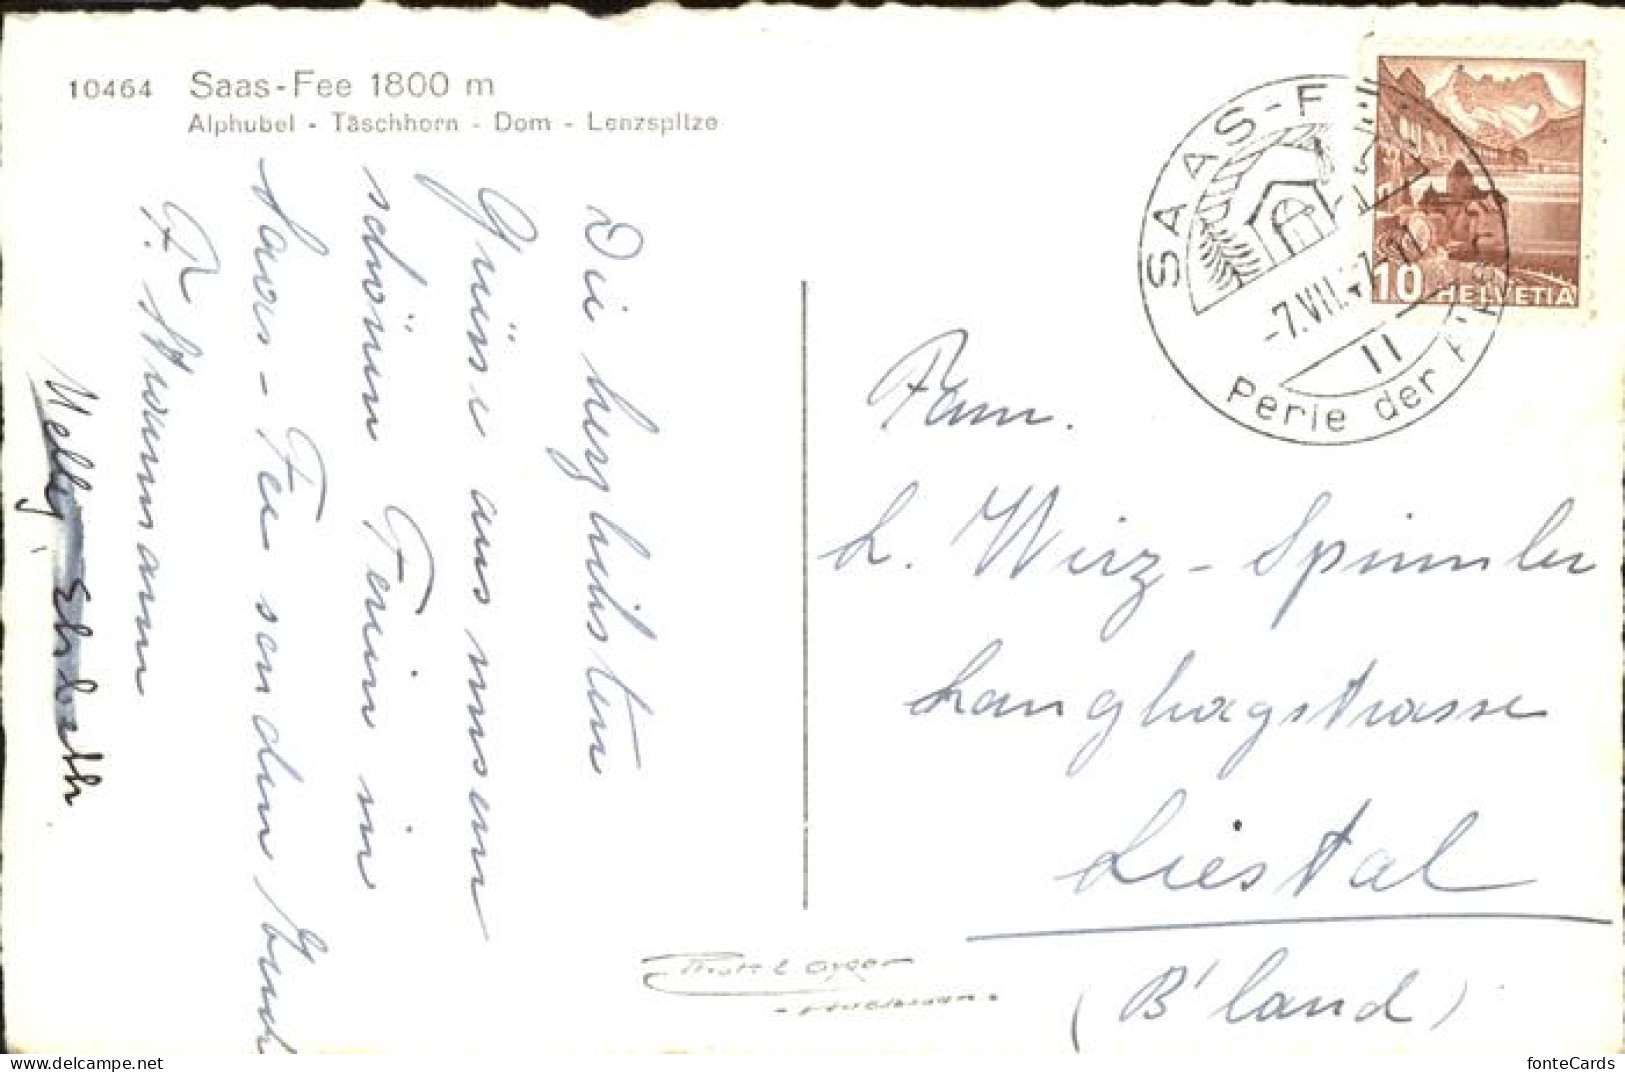 10464 Saas-Fee 1800 m
Alphubel - Täschhorn - Dom - Lenzspitze
Die herzlichsten
Grüsse aus unserem
schönen Ferien in
Saas-Fee senden Euch
F. Stammann
Nelly
SAAS-FEE
-7.VII.
11
Perle der Alpen
10 HELVETIA
Fam.
L. Wirz-Spinnler
Langhagstrasse
Liestal
(B'land)
fonteCards